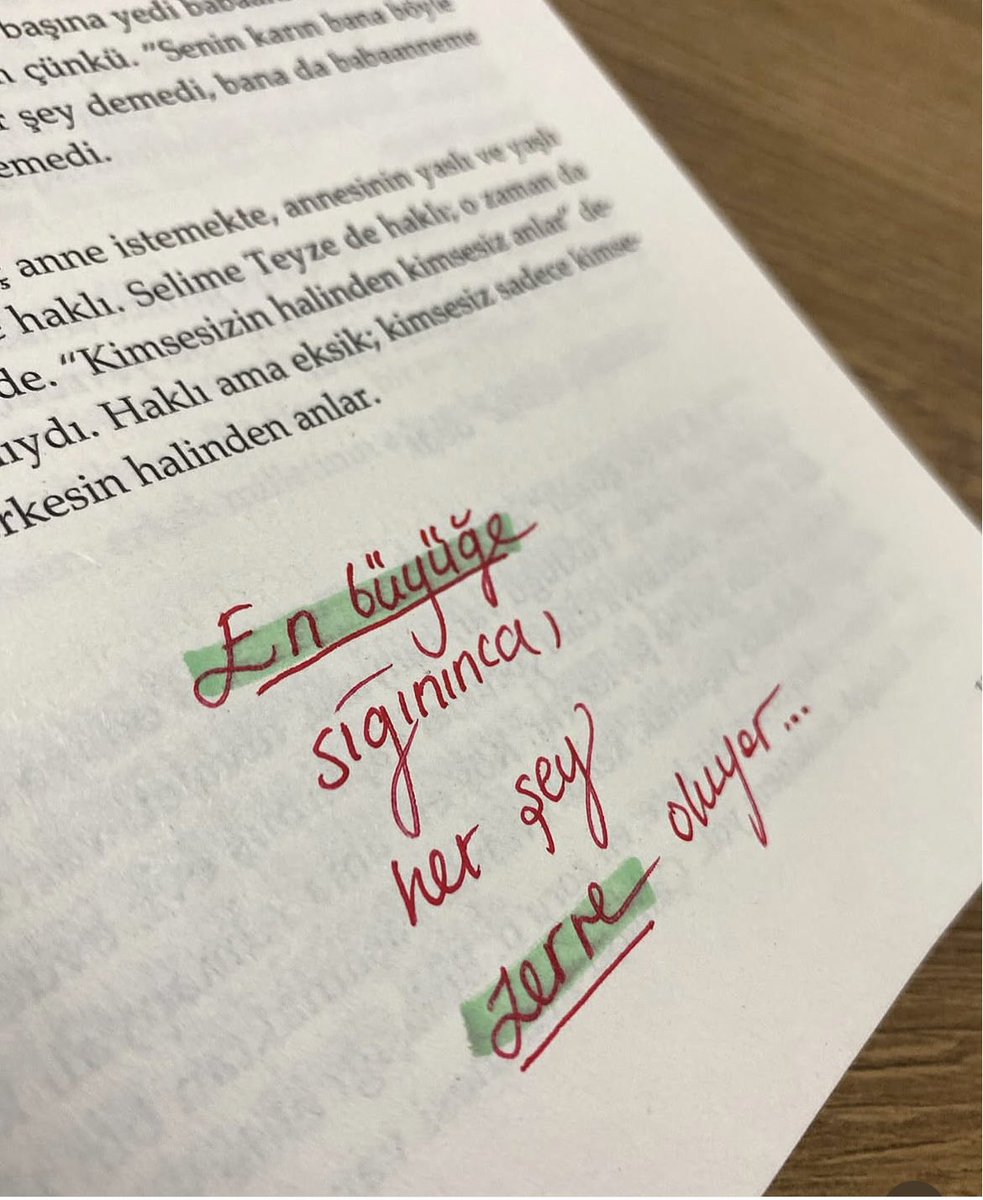 başına yedi
çünkü. "Senin karın bana böyle
şey demedi, bana da babaanneme
emedi.
anne istemekte, annesinin yaslı ve yaşlı
haklı. Selime Teyze de haklı; o zaman da
de. "Kimsesizin halinden kimsesiz anlar" de-
ıydı. Haklı ama eksik; kimsesiz sadece kimse-
rkesin halinden anlar.
En büyüğe
sığınınca,
her şey
zerre oluyor...